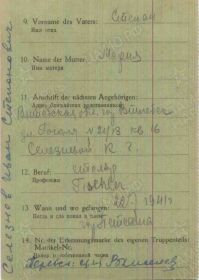 Селезнев Иван Степанович
9. Vorname des Vaters: Степан
Имя отца
10. Name der Mutter: Мария
Имя матери
11. Anschrift der nächsten Angehörigen:
Адрес ближайших родственников
Витебская обл. гор. Витебск
ул. Гоголя № 21/13 кв 16
К. Г.
12. Beruf: столяр
Профессия Tischler
13. Wann und wo gefangen: 1941 г
Когда и где взят в плен:
14. Nr. der Erkennungsmarke des eigenen Truppenteils:
Matrikel-Nr.